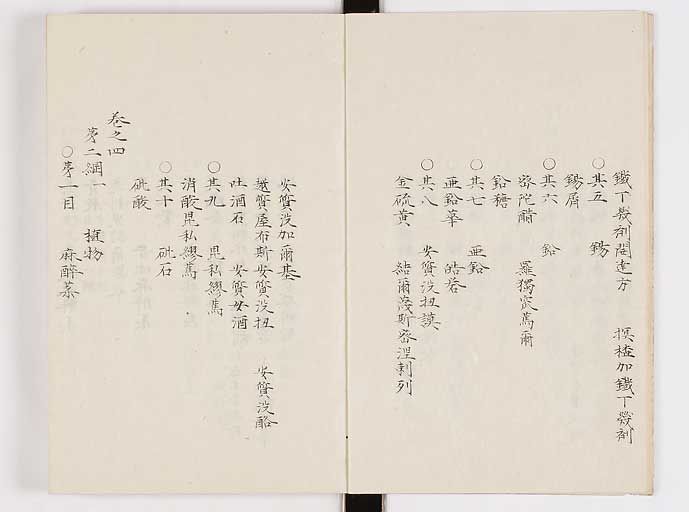 鐵丁幾剤閭達方　揬樝加鐵丁幾剤
○其五　錫
錫屑
○其六　鉛
密陀醋　羅獨密萬爾
鉛糖
○其七　亜鉛
亜鉛華　皓礬
○其八　安質没扭謨
金硫黄　結爾茂斯密涅剌列
安質没加爾基
越質屋布斯安質没扭　安質没酪
吐酒石　安質母酒
○其九　毘私繆萬
消酸毘私繆萬
○其十　砒石
砒酸
巻之四
第二綱一　植物
○第一目　麻酔薬